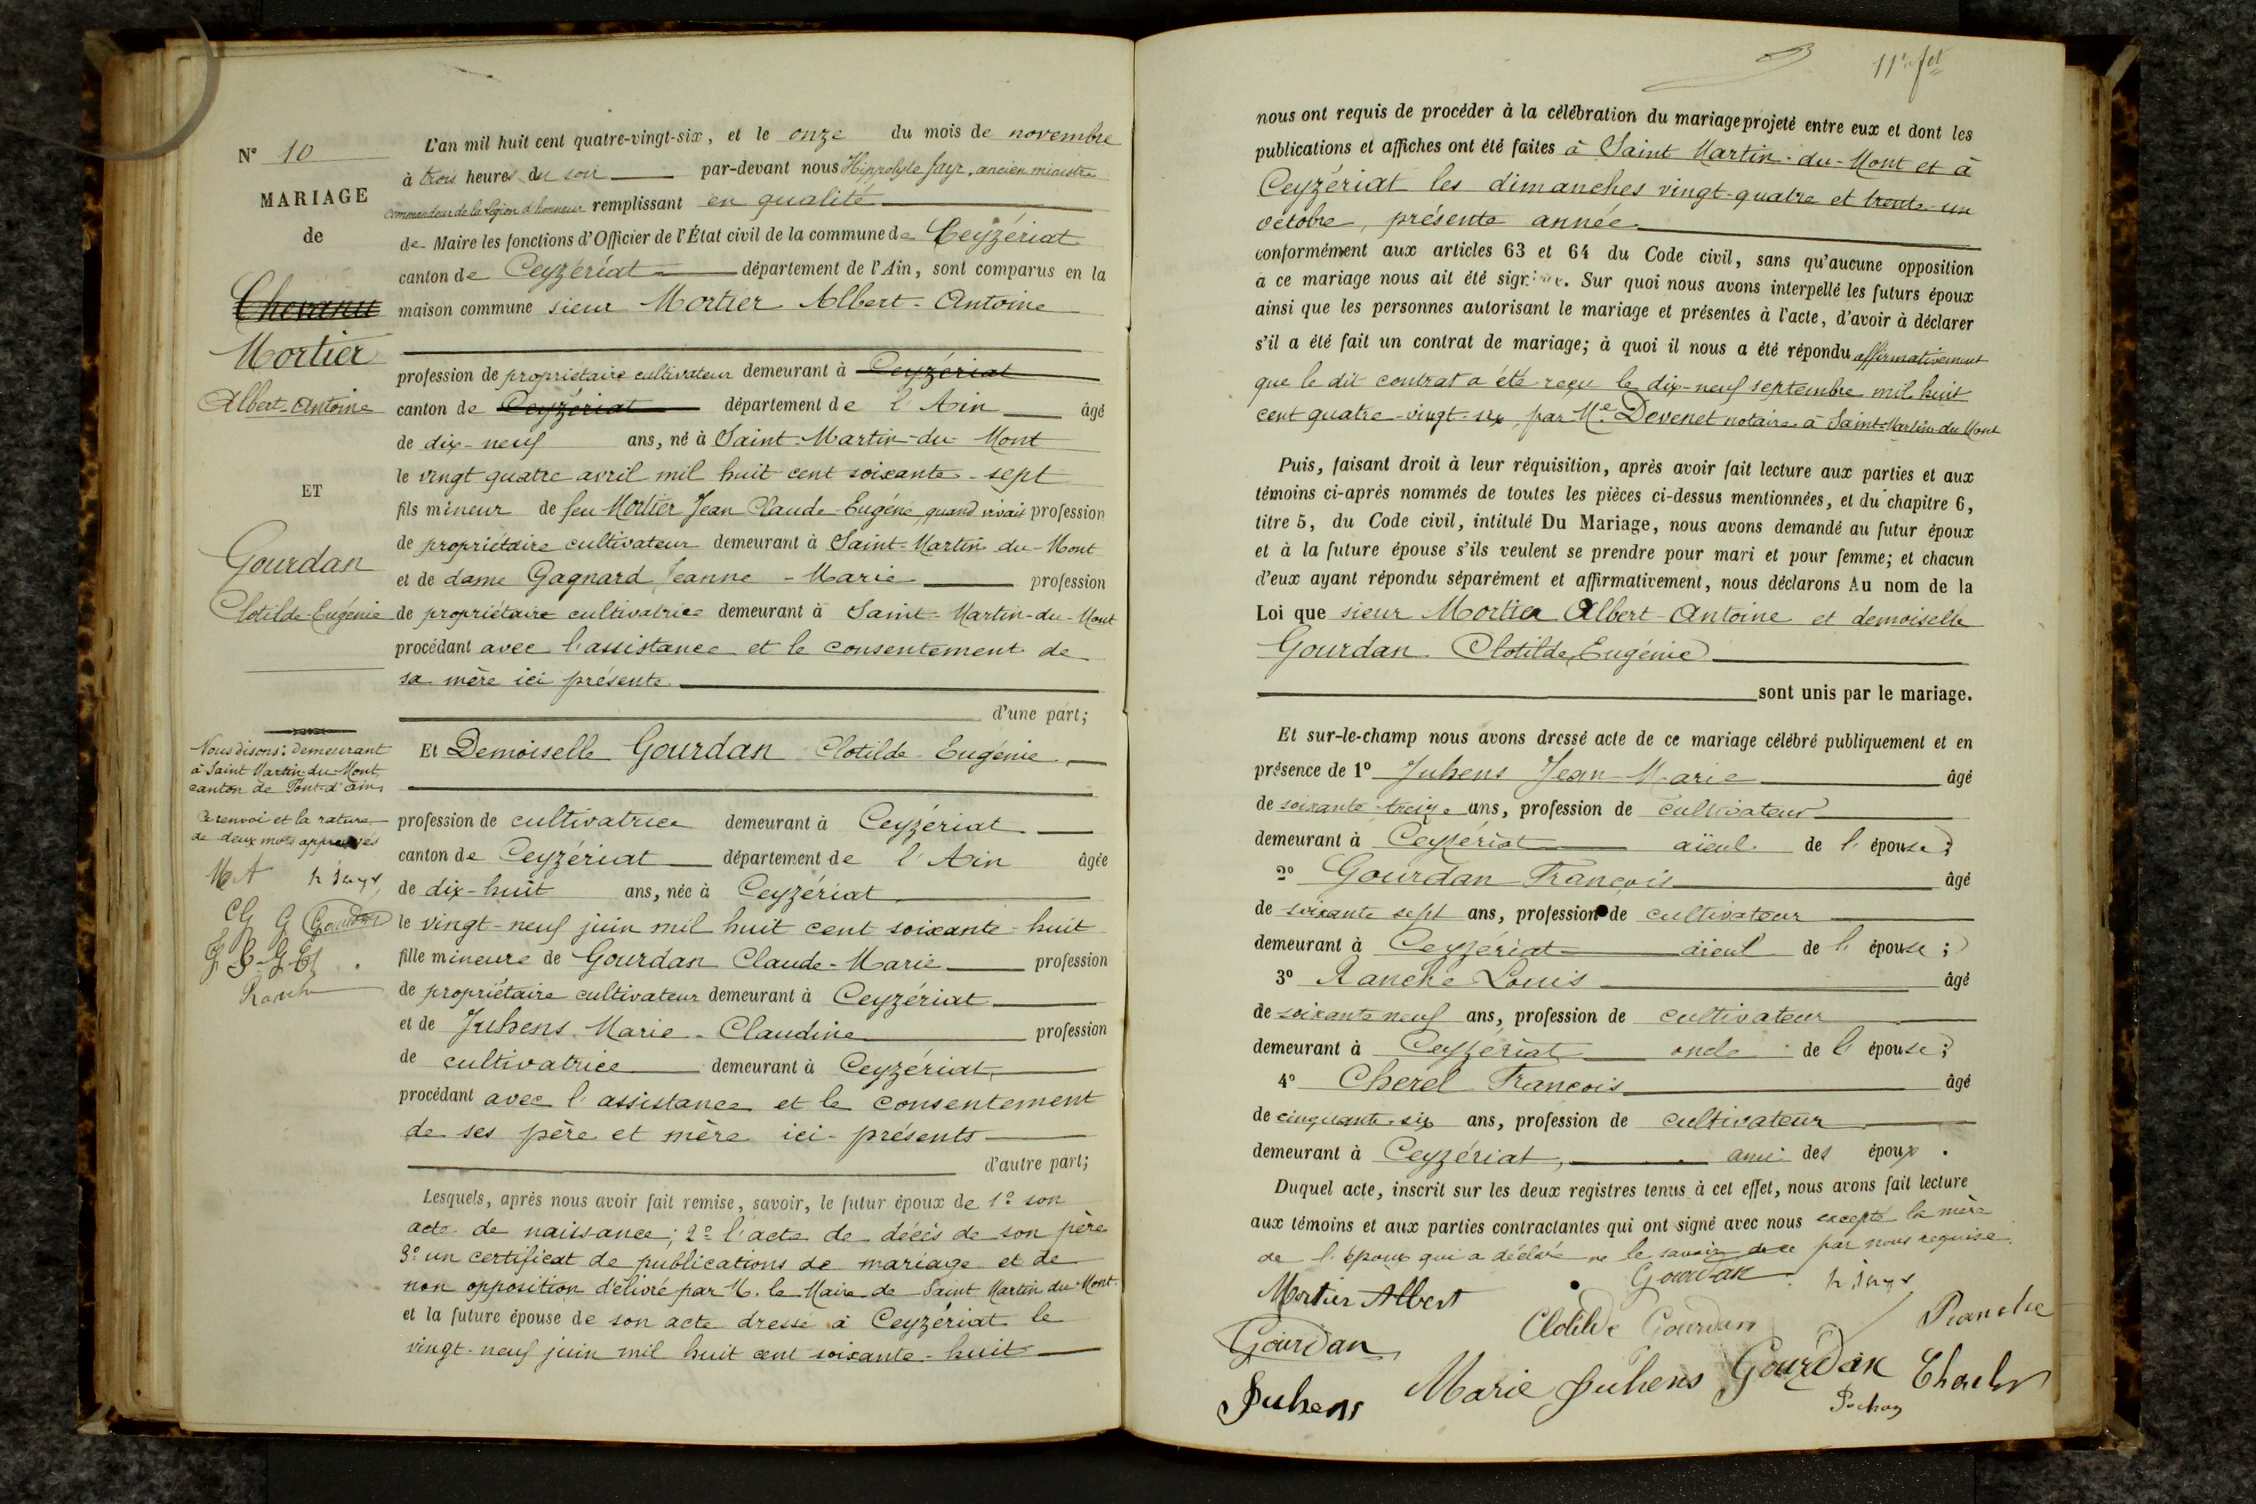 N° 10
MARIAGE
de
Mortier
Albert-Antoine
ET
Gourdan
Clotilde-Eugénie
Nous disons: demeurant
à Saint Martin-du-Mont,
canton de Pont-d'ain,
Ce renvoi et la rature
de deux mots approuvés
M A
CG G Gourdan
Ranche
L'an mil huit cent quatre-vingt-six, et le onze du mois de novembre
à trois heures du soir par-devant nous Hippolyte Jayr, ancien ministre
commandeur de la Légion d'honneur remplissant en qualité
de Maire les fonctions d'Officier de l'État civil de la commune de Ceyzériat
canton de Ceyzériat département de l'Ain, sont comparus en la
maison commune sieur Mortier Albert-Antoine
profession de propriétaire cultivateur demeurant à Ceyzériat
canton de Ceyzériat département de l'Ain âgé
de dix-neuf ans, né à Saint-Martin-du-Mont
le vingt quatre avril mil huit cent soixante-sept
fils mineur de feu Mortier Jean Claude-Eugéne, quand vivait profession
de propriétaire cultivateur demeurant à Saint-Martin du-Mont
et de dame Gagnard Jeanne-Marie profession
de propriétaire cultivatrice demeurant à Saint-Martin-du-Mont
procédant avec l'assistance et le consentement de
sa mère ici présente
d'une part;
Et Demoiselle Gourdan Clotilde-Eugénie
profession de cultivatrice demeurant à Ceyzériat
canton de Ceyzériat département de l'Ain âgée
de dix-huit ans, née à Ceyzériat
le vingt-neuf juin mil huit cent soixante-huit
fille mineure de Gourdan Claude-Marie profession
de propriétaire cultivateur demeurant à Ceyzériat
et de Juhens Marie-Claudine profession
de cultivatrice demeurant à Ceyzériat
procédant avec l'assistance et le consentement
de ses père et mère ici-présents
d'autre part;
Lesquels, après nous avoir fait remise, savoir, le futur époux de 1° son
acte de naissance; 2° l'acte de décès de son père
3° un certificat de publications de mariage et de
non opposition délivré par M. le Maire de Saint Martin du-Mont
et la future épouse de son acte dressé à Ceyzériat le
vingt-neuf juin mil huit cent soixante-huit
11e fet
nous ont requis de procéder à la célébration du mariage projeté entre eux et dont les
publications et affiches ont été faites à Saint Martin-du-Mont et à
Ceyzériat les dimanches vingt-quatre et trente-un
octobre, présente année
conformément aux articles 63 et 64 du Code civil, sans qu'aucune opposition
à ce mariage nous ait été signifiée. Sur quoi nous avons interpellé les futurs époux
ainsi que les personnes autorisant le mariage et présentes à l'acte, d'avoir à déclarer
s'il a été fait un contrat de mariage; à quoi il nous a été répondu affirmativement
que le dit contrat a été reçu le dix-neuf septembre mil huit
cent quatre-vingt-six, par Me Devenet notaire à Saint-Martin-du-Mont
Puis, faisant droit à leur réquisition, après avoir fait lecture aux parties et aux
témoins ci-après nommés de toutes les pièces ci-dessus mentionnées, et du chapitre 6,
titre 5, du Code civil, intitulé Du Mariage, nous avons demandé au futur époux
et à la future épouse s'ils veulent se prendre pour mari et pour femme; et chacun
d'eux ayant répondu séparément et affirmativement, nous déclarons Au nom de la
Loi que sieur Mortier Albert-Antoine et demoiselle
Gourdan Clotilde, Eugénie
sont unis par le mariage.
Et sur-le-champ nous avons dressé acte de ce mariage célébré publiquement et en
présence de 1° Juhens Jean-Marie âgé
de soixante-treize ans, profession de cultivateur
demeurant à Ceyzériat aïeul de l'épouse;
2° Gourdan François âgé
de soixante sept ans, profession de cultivateur
demeurant à Ceyzériat aïeul de l'épouse;
3° Ranche Louis âgé
de soixante neuf ans, profession de cultivateur
demeurant à Ceyzériat oncle de l'épouse;
4° Cherel François âgé
de cinquante-six ans, profession de cultivateur
demeurant à Ceyzériat, ami des époux.
Duquel acte, inscrit sur les deux registres tenus à cet effet, nous avons fait lecture
aux témoins et aux parties contractantes qui ont signé avec nous excepté la mère
de l'époux qui a déclaré ne le savoir de ce par nous requise.
Mortier Albert Gourdan
Gourdan Clotilde Gourdan Ranche
Juhens Marie Juhens Gourdan